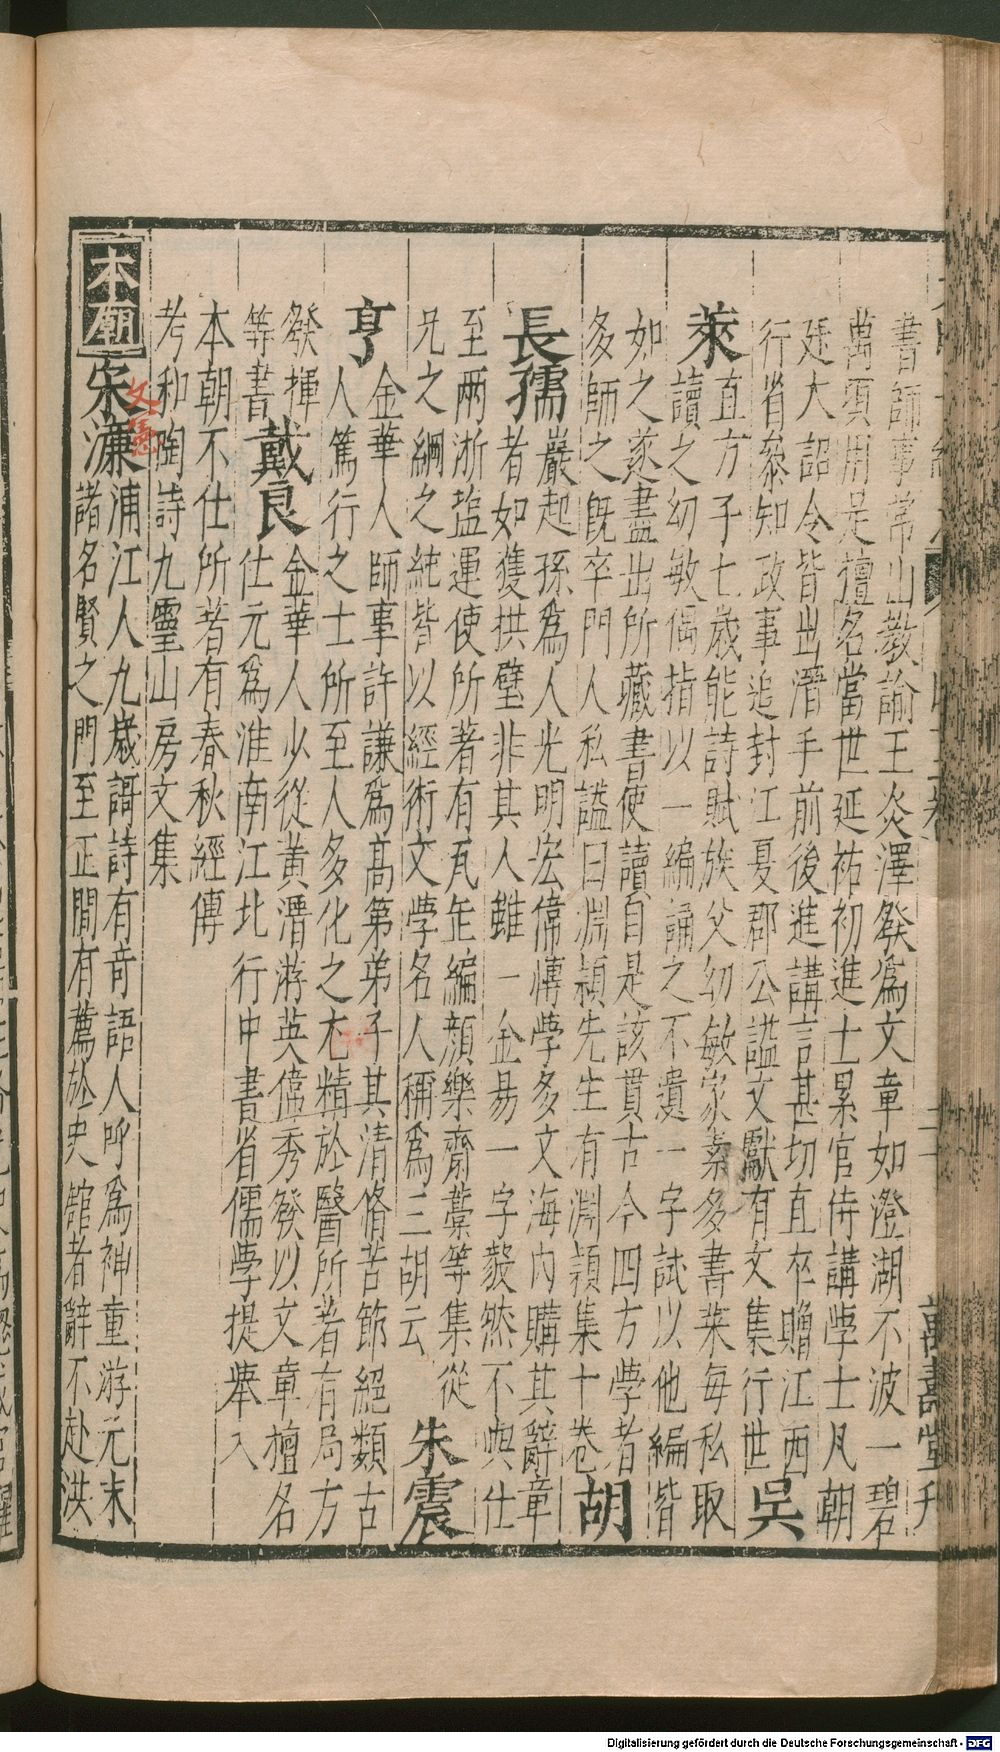 書師事常山教諭王炎澤發為文章如澄湖不波一碧
萬頃用是擅名當世延祐初進士累官侍講學士凡朝
廷大詔令皆出溍手前後進講言甚切直卒贈江西
行省叅知政事追封江夏郡公謚文獻有文集行世吳
萊直方子七歲能詩賦族父幼敏家素多書萊每私取
讀之幼敏偶指以一編誦之不遺一字試以他編皆
如之遂盡出所藏書使讀自是該貫古今四方學者
多師之旣卒門人私謚曰淵穎先生有淵穎集十卷胡
長孺巖起孫為人光明宏偉慱學多文海内購其辭章
者如獲拱璧非其人雖一金易一字毅然不與仕
至兩浙盐運使所著有瓦缶編顔樂齋藁等集從
兄之綱之純皆以經術文學名人稱為三胡云朱震
亨金華人師事許謙為高第弟子其清脩苦節絕類古
人篤行之士所至人多化之尤精於醫所著有局方
發揮
等書戴良金華人少從黃溍游英偉秀發以文章擅名
仕元為淮南江北行中書省儒學提舉入
本朝不仕所著有春秋經傳
考和陶詩九靈山房文集
本朝宋濂浦江人九歲謌詩有奇語人呼為神童游元末
諸名賢之門至正間有薦於史館者辭不赴洪
文憲
萬壽堂刋
Digitalisierung gefördert durch die Deutsche Forschungsgemeinschaft - DFG